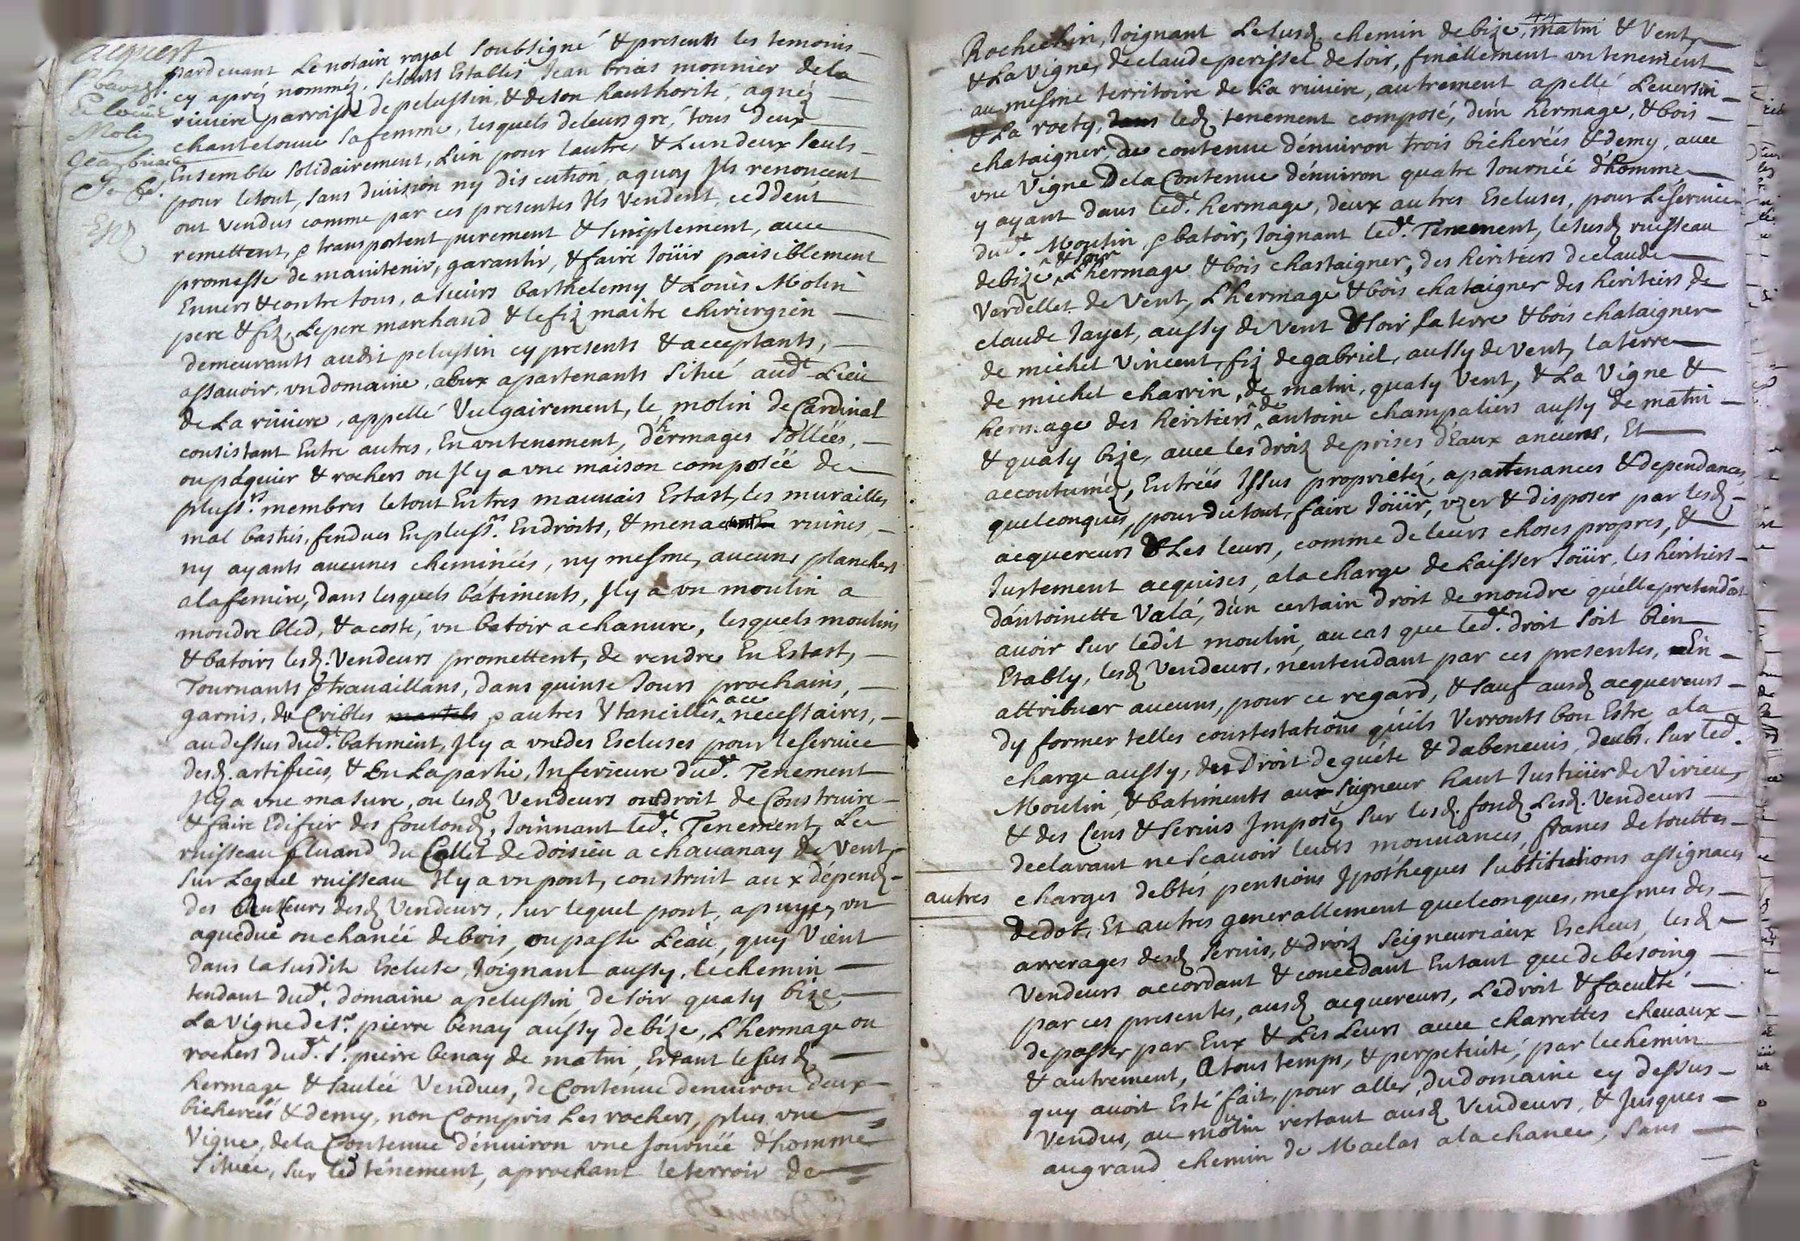 acquest
P. barthel.
& louis
Molin
Jean brias
& Sa fe.
Exp.
Pardevant Le notaire royal soubsigné & presents les temoins
cy apres nommés, se sonts Establis Jean brias monnier de la
riviere parroisse de pelussin, & de son hauthorité, agnes
chantelouve sa femme, lesquels de leurs gré, tous deux
Ensemble solidairement, L'un pour l'autre, & L'un deux seuls
pour letout, sans division ny discution, a quoy Ils renoncent
ont Vendus comme par ces presentes Ils Vendent, ceddent
remettent, & transportent purement & simplement, avec
promesse de maintenir, garantir, & faire Joüir paisiblement
Envers & contre tous, a sieurs barthelemy & Louis Molin
pere & fiz, Le pere marchand & le fiz maitre chirurgien
demeurants audit pelussin cy presents & acceptants,
assavoir, un domaine, a Eux apartenants situé aud.t Lieu
de La riviere, appellé Vulgairement, le molin de Cardinal
consistant Entre autres, En un tenement, d'hermages sollées,
ou pâquier & rochers ou Il y a une maison composéé de
pluss.rs membres le tout En tres mauvais Estast, les murailles
mal basties, fendues En pluss.rs Endroits, & menacent ruines,
ny ayants aucunes cheminées, ny mesme, aucune planches
a la femire, dans lesquels bâtiments, Il y a un moulin a
moudre bled, & a costé, un batoir a chanvre, lesquels moulins
& batoirs lesd. Vendeurs promettent, de rendre En Estast,
Tournants & travaillans, dans quinse Jours prochains,
garnis, de Cribles martels & autres Utancilles a ce necessaires,
au dessus dud.t batiment, Il y a une des Escluses pour le service
desd. artifices, & En La partie, Inferieure dud.t Tenement
Il y a une masure, ou lesd. Vendeurs on droit de Construire
& faire Edifier des foulons, Joinnant led.t Tenement, Le
ruisseau fluand du Collet de doisieu a chavanay de Vent,
sur Lequel ruisseau Il y a un pont, construit aux dépends
des autheurs desd. Vendeurs, sur lequel pont, apuye, un
aqueduc ou chanéé de bois, ou passe L'eau, quy Vient
dans la susdite Escluse, Joignant aussy, le chemin
tendant dud.t domaine a pelussin de soir quasy bize,
La Vigne de s.r pierre benay aussy de bize, L'hermage ou
rochers dud.t s.r pierre benay de matin, Estant le susd.
hermage & saulée Vendues, de Contenue denviron deux
bicherées & demy, non Compris Les rochers, plus une
Vigne, de la Contenue d'environ une Journée d'homme
située, sur led tenement, aprochant le terroir de
44
Rochechin, Joignant Le susd. chemin de bize, matin & Vent,
& La Vigne, de claude perissel de soir, finallement un tenement
au mesme territoire de La riviere, autrement apellé Leversin
& La roety, dans led. tenement composé, d'un hermage, & bois
chataigner, de contenue d'environ trois bicheréés & demy, avec
une Vigne De la Contenue d'environ quatre Journéé d'homme
y ayant dans led.t hermage, deux autres Escluses, pour Le service
dud.t Moulin & batoir, Joignant led.t Tenement, le susd. ruisseau
de bize & soir L'hermage & bois chastaigner, des heritiers de claude
Verdellet de Vent, L'hermage & bois chataigner des heritiers de
claude Jayet, aussy de Vent & soir La terre & bois chataigner
de michel Vincent fiz de gabriel, aussy de Vent, la terre
de michel charvin, de matin, quasy Vent, & La Vigne &
hermage des heritiers de antoine champaliers aussy de matin
& quasy bize, avec les droiz de prises d'Eaux anciens, Et
accoutumés, Entréés Issus proprietés, apartenances & dependances
quelconques, pour du tout, faire Joüir, uzer & disposer par lesd.
acquereurs & Les leurs, comme de leurs choses propres, &
Justement acquises, a la charge de Laisser Joüir, les heritiers
d'antoinette Valà, d'un certain droit de moudre qu'elle pretendoit
avoir sur ledit moulin, au cas que led.t droit soit bien
Etably, lesd. Vendeurs, nentendant par ces presentes, En
attribuer aucuns, pour ce regard, & sauf ausd. acquereurs
dy former telles contestations qu'ils Verronts bon Estre, a la
charge aussy, des Droit de guéte & d'abenevis, deubs sur led.t
Moulin, & batiments aux seigneur haut Justicier de Virieu,
& des Cens & servis Imposés sur lesd. fonds Lesd. Vendeurs
declarant ne scavoir leurs mouvances, francs de touttes
autres charges debtes pensions Ipothéques substitutions assignaons
de dot, Et autres generallement quelconques, mesmes des
arrerages desd. servis, & droiz seigneuriaux Escheus, lesd.
Vendeurs accordant & concedant En tant que de besoing
par ces presentes, ausd. acquereurs, Le droit & faculté
de passer par Eux & Les Leurs avec charrettes chevaux
& autrement, a tous temps, & perpetuité, par le chemin
quy avoit Esté fait, pour aller du domaine cy dessus
Vendus, au molin restant ausd. Vendeurs, & Jusques
au grand chemin de Maclas a la chanee, sans